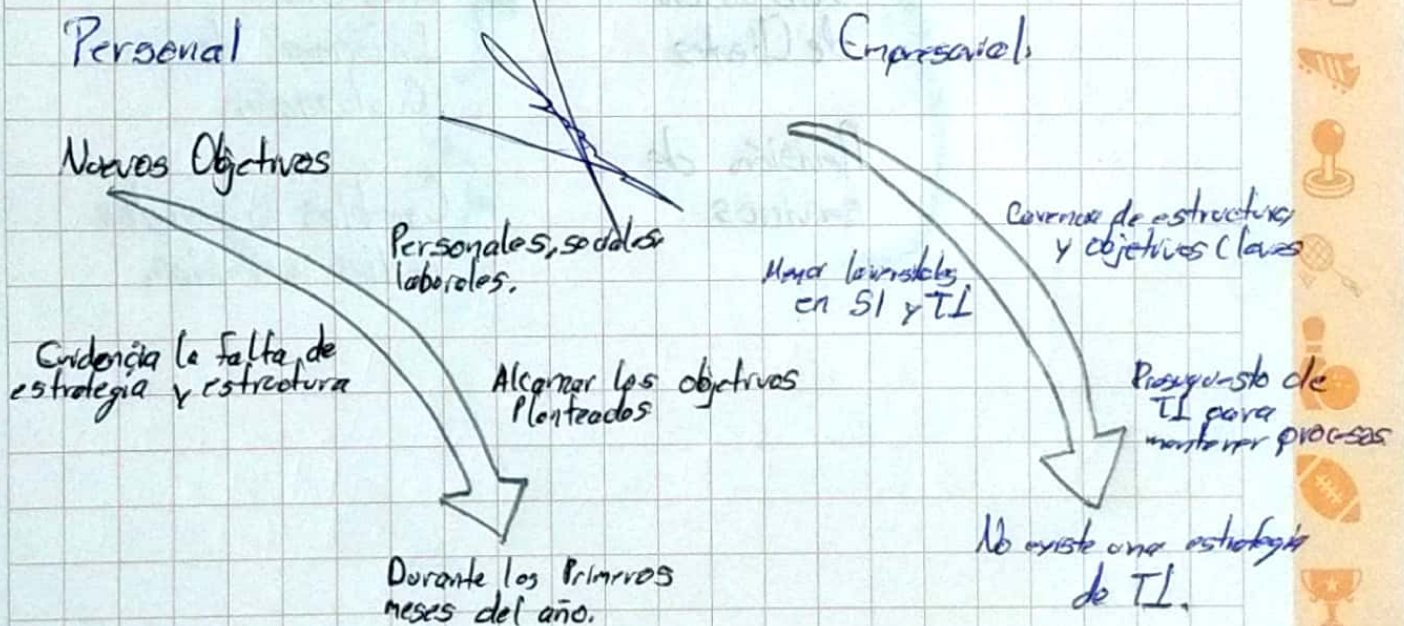 Personal
Empresarial.
Nuevos Objetivos
Personales, sociales
laborales.
Evidencia la falta de
estrategia y estructura
Alcanzar los objetivos
Planteados
Durante los Primeros
meses del año.
Carencia de estructura
y objetivos Claros
Menor
en SI y TI
Presupuesto de
TI para
mantener procesos
No existe una estrategia
de TI.